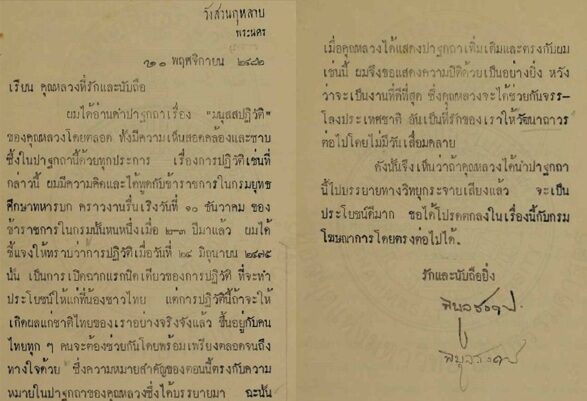 วังสวนกุหลาบ
พระนคร
๒๐ พฤศจิกายน ๒๔๘๒
เรียน คุณหลวงที่รักและนับถือ
ผมได้อ่านคำปาฐกถาเรื่อง "มนุสสปฏิวัติ"
ของคุณหลวงโดยตลอด ทั้งมีความเห็นสอดคล้องและซาบ
ซึ้งในปาฐกถานี้ด้วยทุกประการ เรื่องการปฏิวัติเช่นที่
กล่าวนี้ ผมมีความคิดและได้พูดกับข้าราชการในกรมยุทธ
ศึกษาทหารบก คราวงานรื่นเริงวันที่ ๑๐ ธันวาคม ของ
ข้าราชการในกรมนั้นหนหนึ่งเมื่อ ๒-๓ ปีมาแล้ว ผมได้
ชี้แจงให้ทราบว่าการปฏิวัติเมื่อวันที่ ๒๔ มิถุนายน ๒๔๗๕
นั้น เป็นการเปิดฉากแรกนิดเดียวของการปฏิวัติ ที่จะทำ
ประโยชน์ให้แก่พี่น้องชาวไทย แต่การปฏิวัตินี้ถ้าจะให้
เกิดผลแก่ชาติไทยของเราอย่างจริงจังแล้ว ขึ้นอยู่กับคน
ไทยทุก ๆ คนจะต้องช่วยกันโดยพร้อมเพรียงตลอดจนถึง
ทางใจด้วย ซึ่งความหมายสำคัญของตอนนี้ตรงกับความ
หมายในปาฐกถาของคุณหลวงซึ่งได้บรรยายมา ฉะนั้น
เมื่อคุณหลวงได้แสดงปาฐกถาเพิ่มเติมและตรงกับผม
เช่นนี้ ผมจึงขอแสดงความปิติด้วยเป็นอย่างยิ่ง หวัง
ว่าจะเป็นงานที่ดีที่สุด ซึ่งคุณหลวงจะได้ช่วยกันจรร-
โลงประเทศชาติ อันเป็นที่รักของเราให้วัฒนาถาวร
ต่อไปโดยไม่มีวันเสื่อมคลาย
ดังนั้นจึงเห็นว่าถ้าคุณหลวงได้นำปาฐกถา
นี้ไปบรรยายทางวิทยุกระจายเสียงแล้ว จะเป็น
ประโยชน์ดีมาก ขอได้โปรดตกลงในเรื่องนี้กับกรม
โฆษณาการโดยตรงต่อไปได้.
รักและนับถือยิ่ง
พิบูลสงคราม
พิบูลสงคราม